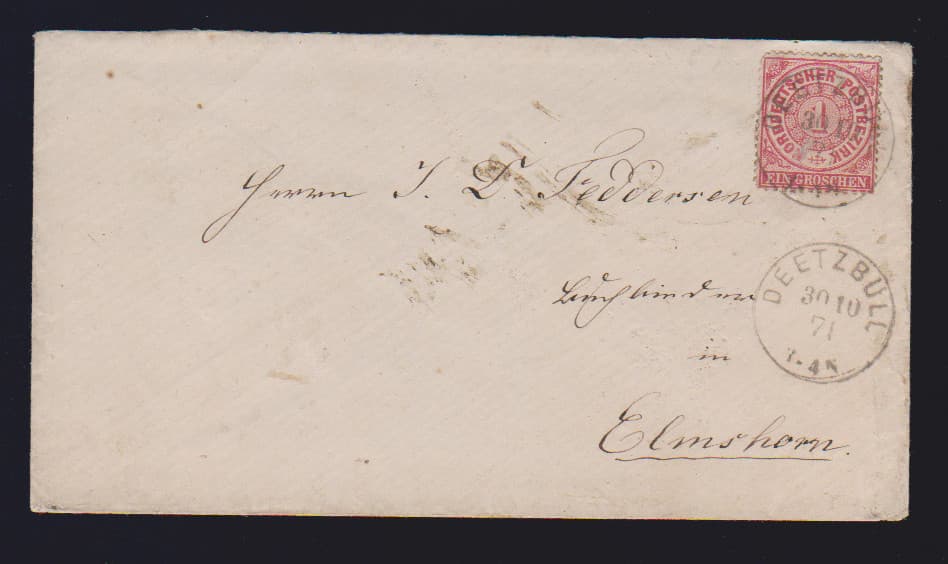 NORDDEUTSCHER POSTBEZIRK
1
EIN GROSCHEN
Herrn J. D. Feddersen
Buchbinder
in
Elmshorn.
DEETZBÜLL
30 10
71